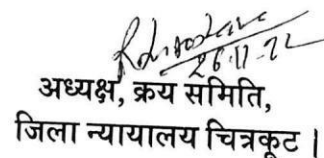 26.11.22
अध्यक्ष, क्रय समिति,
जिला न्यायालय चित्रकूट ।